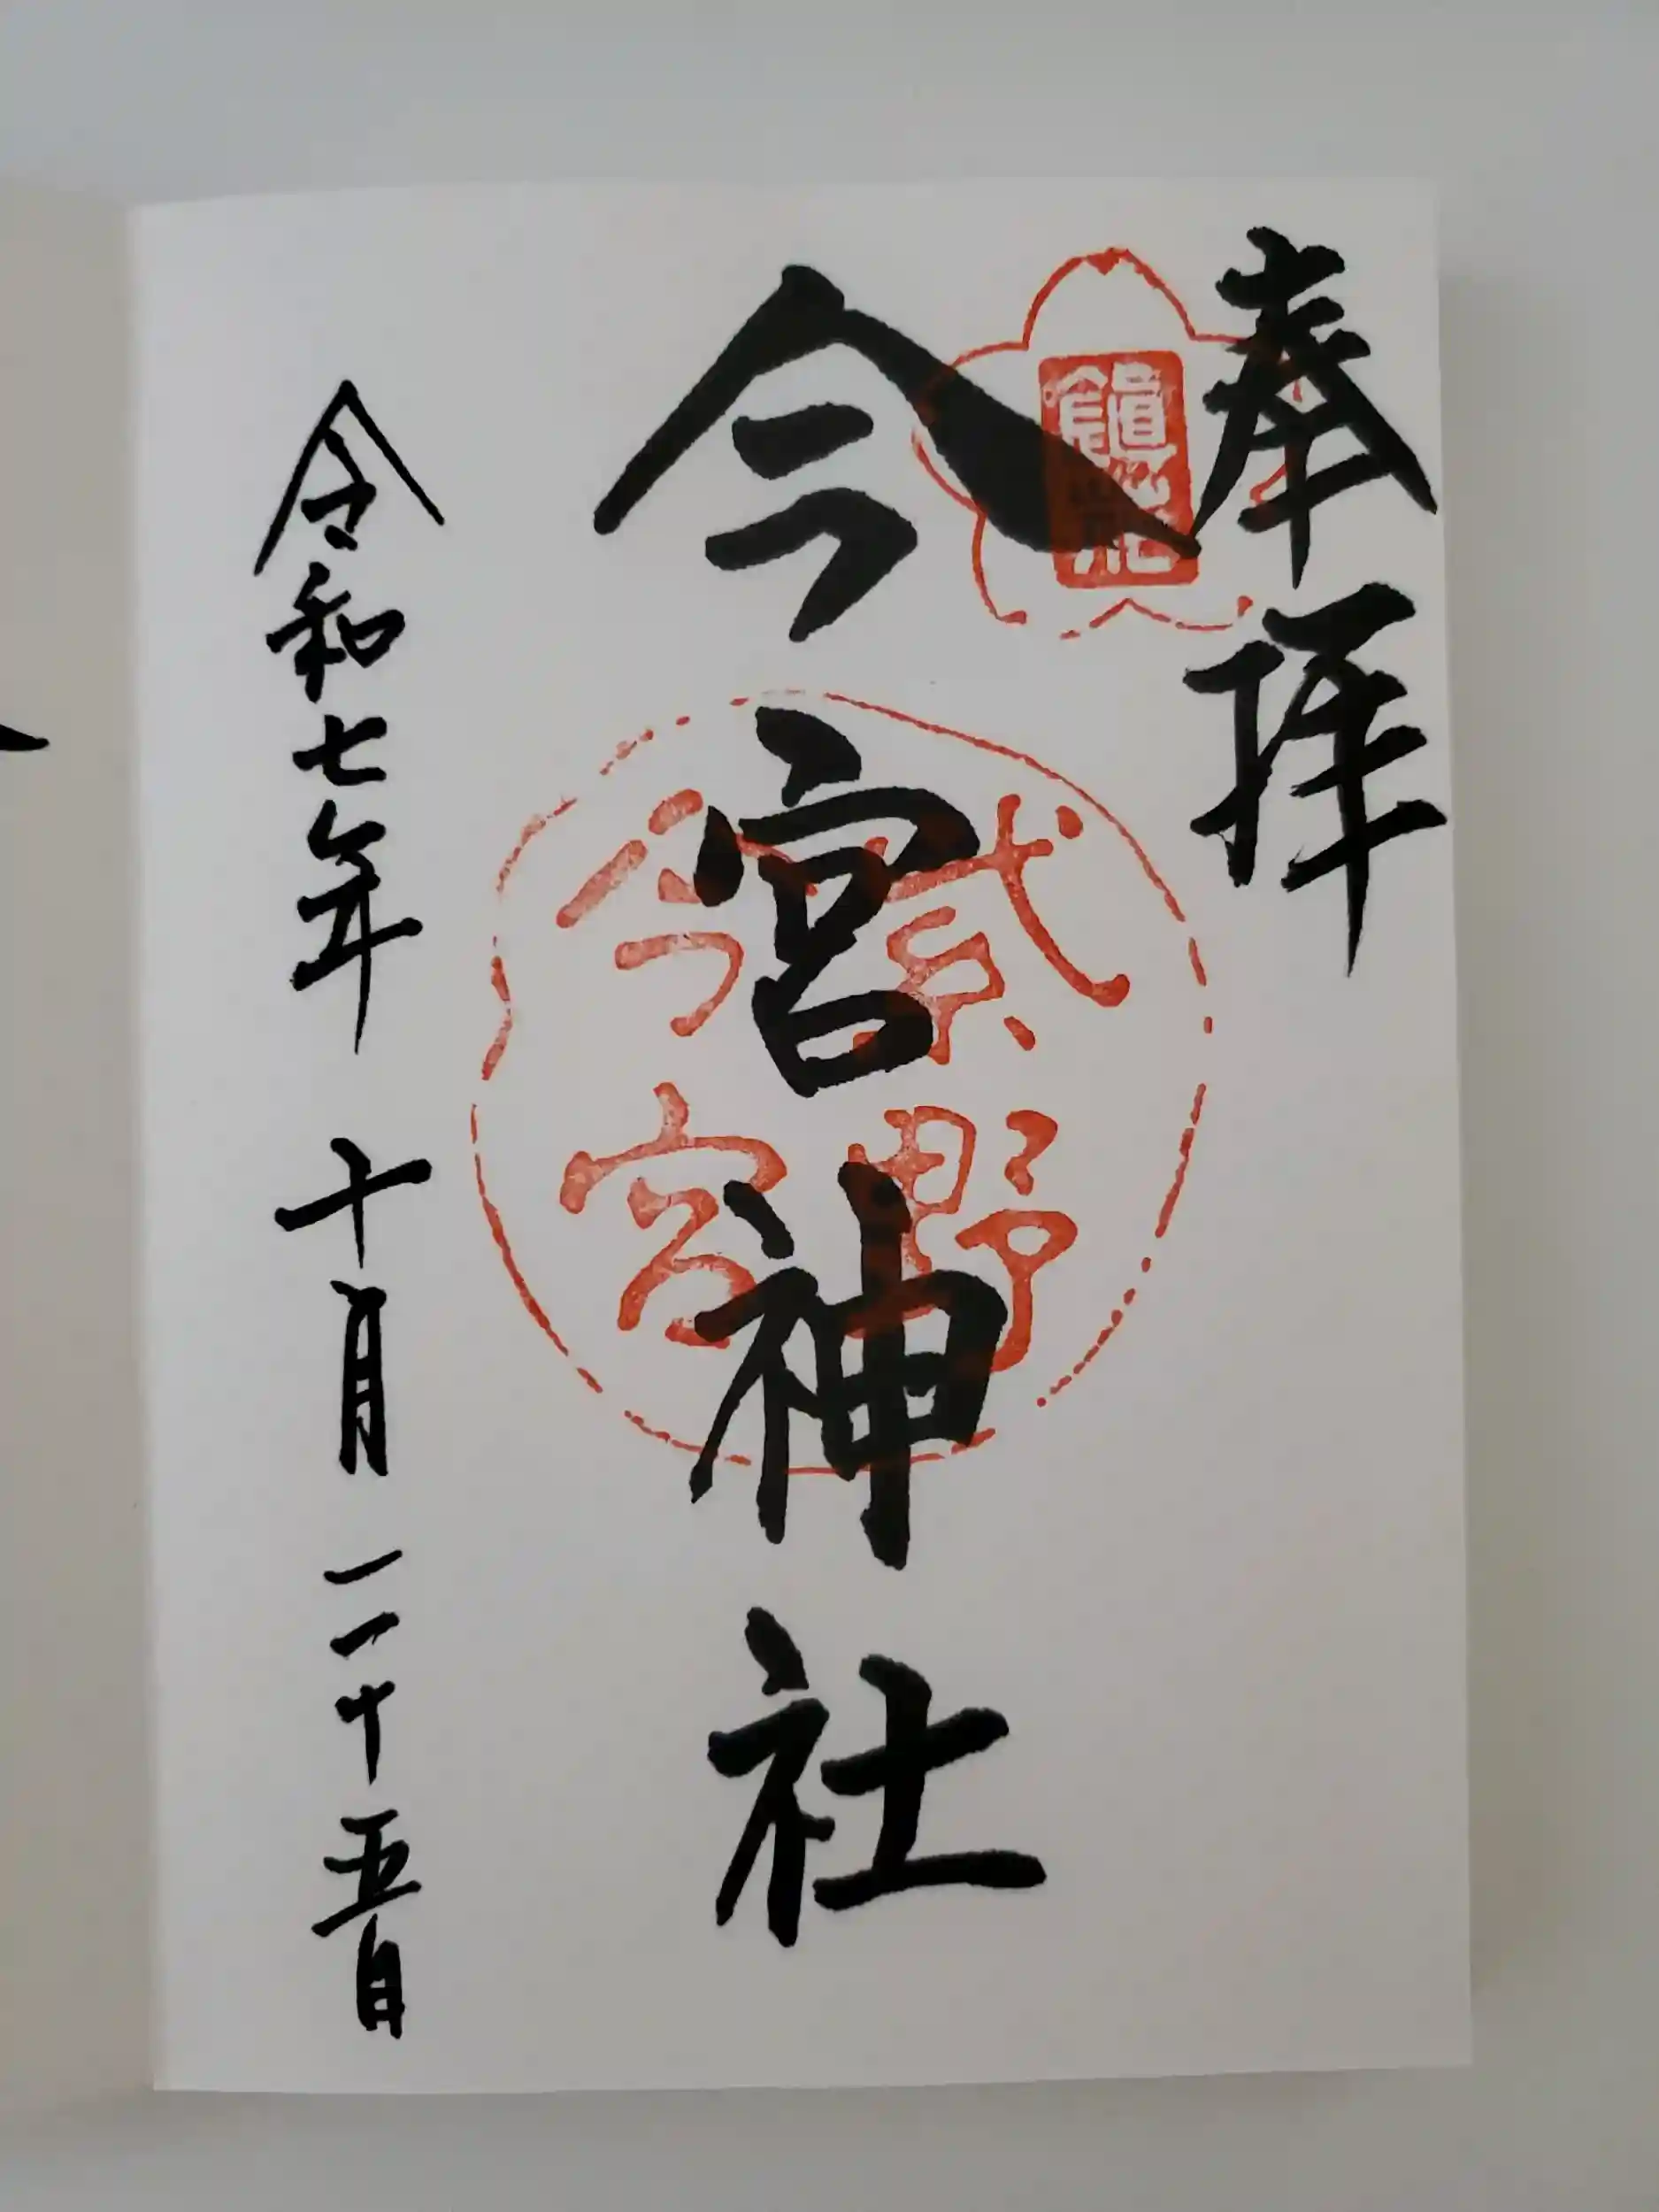 奉拝
鎮花
今宮神社
紫野
今宮
令和七年十月二十五日